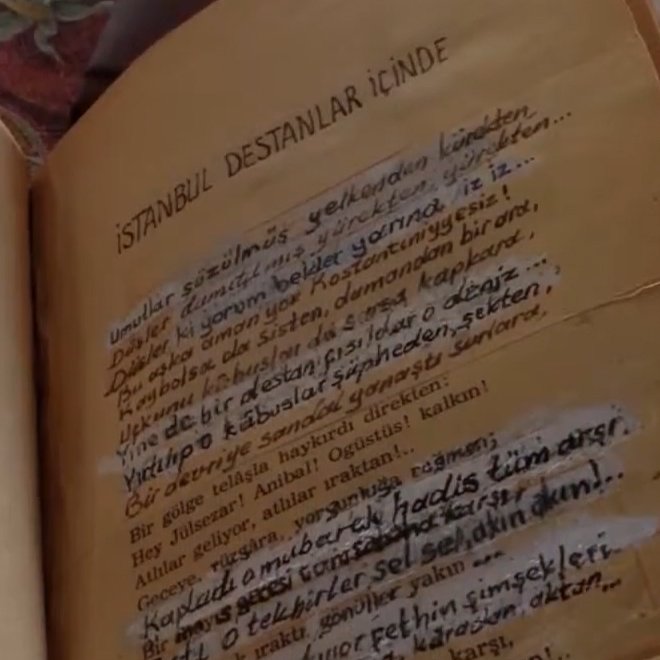 İSTANBUL DESTANLAR İÇİNDE
Umutlar süzülmüş yelkenden kürekten
Düşler damıtılmış yürekten, yürekten...
Düşler ki yorum bekler yarına iz iz...
Bu aşka aman yok Kostantıniyyesiz!
Kaybolsa da sisten, dumandan bir ara,
Ufkunu kâbuslar da sarsa kapkara,
Yine de bir destan fısıldar o deniz...
Yırtılıp o kâbuslar şüpheden, şekten,
Bir devriye sandal yanaştı surlara,
Bir gölge telâşla haykırdı direkten:
Hey Jülsezar! Anibal! Ogüstüs! kalkın!
Atlılar geliyor, atlılar ıraktan!..
Geceye, rüzgâra, yorgunluğa rağmen;
Kapladı o mubarek hadis tüm arşı.
Bir mayıs gecesi tam sabaha karşı,
o tekbirler sel sel, akın akın!..
ıraktı, gönüller yakın...
fethin şimşekleri
karadan, aktan...
karşı,